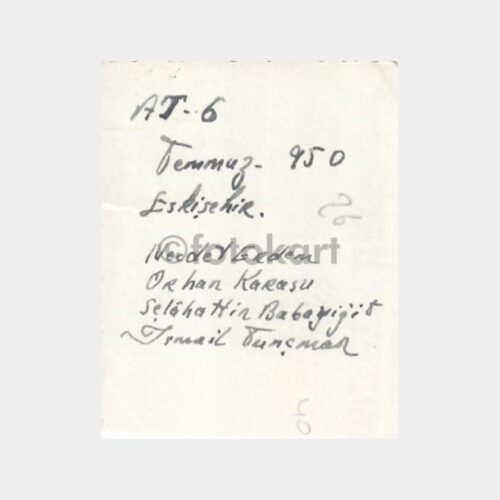 AT-6
Temmuz- 950
Eskişehir.
©fotokart
Necdet Erdem
Orhan Karasu
Selâhattin Babayiğit
İsmail Tunçman